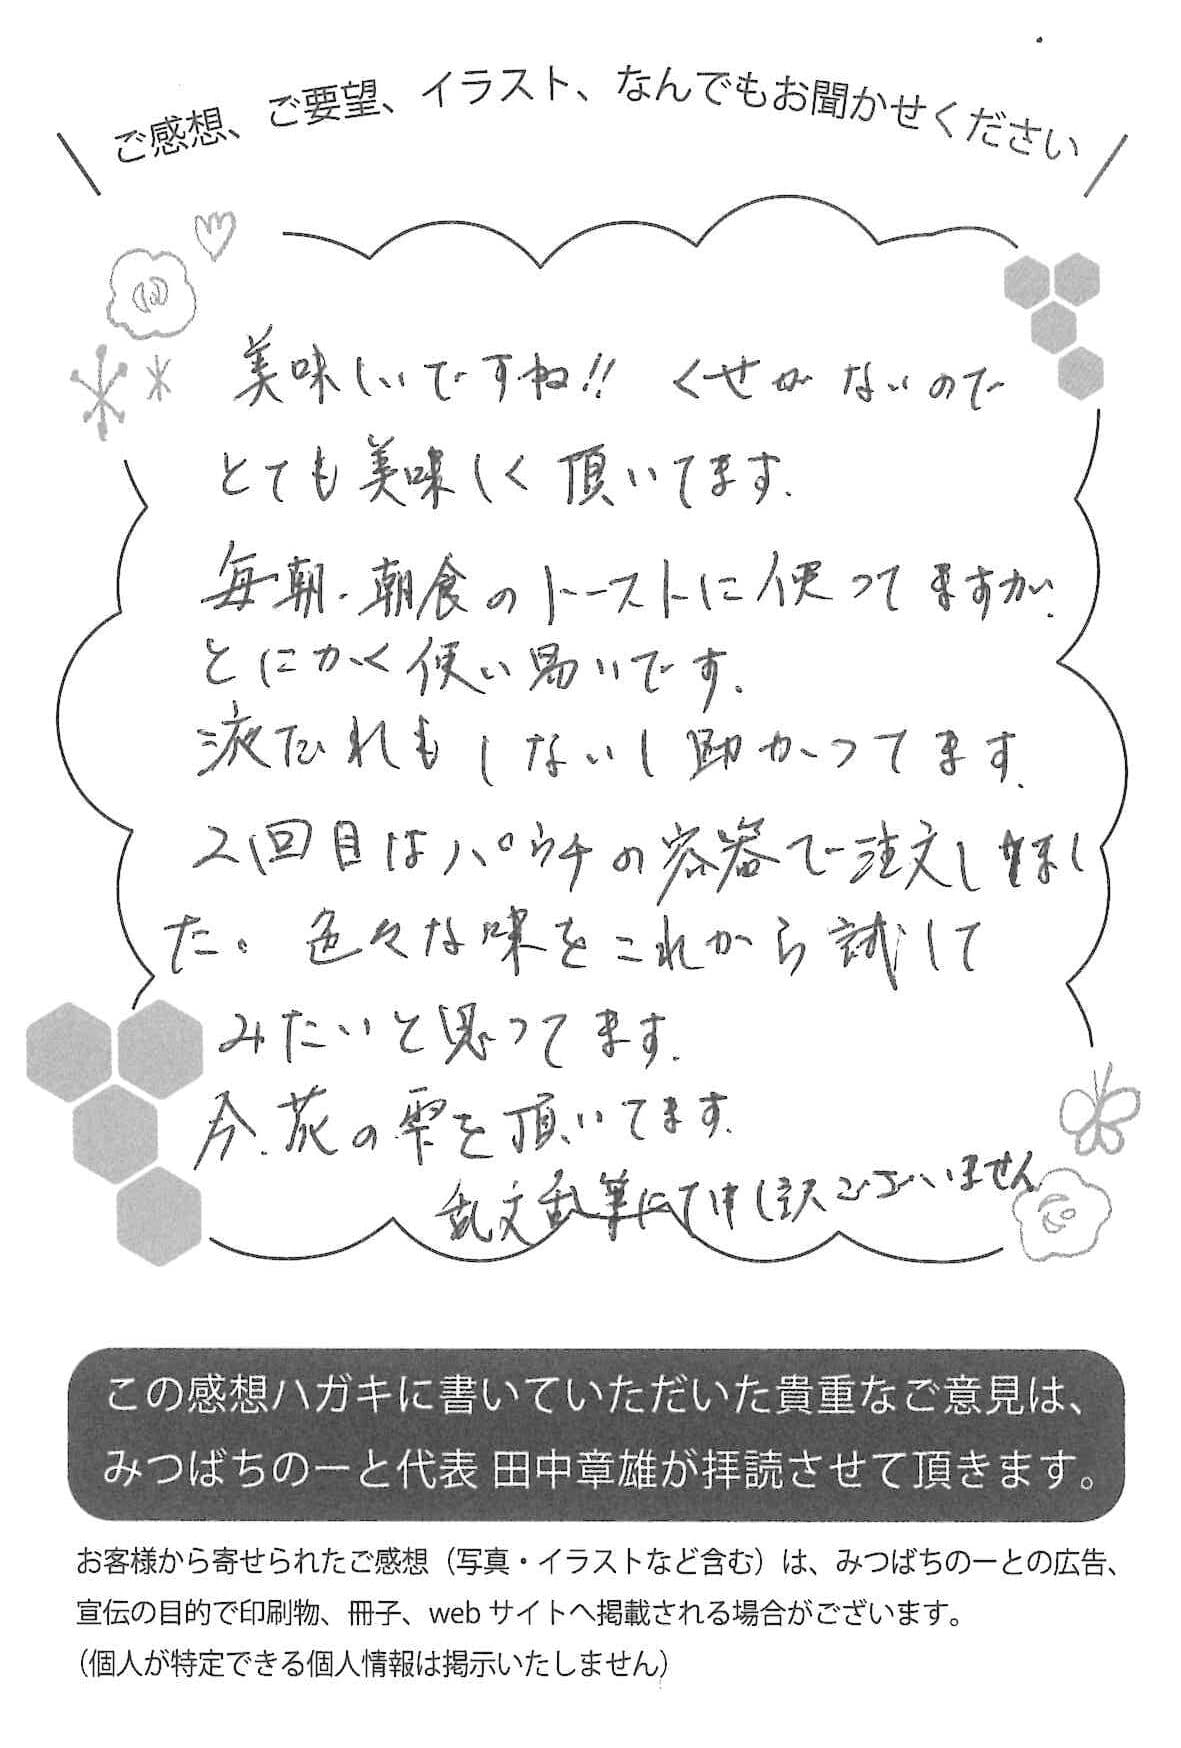 ご感想、ご要望、イラスト、なんでもお聞かせください
美味しいですね!! くせがないので
とても美味しく頂いてます.
毎朝.朝食のトーストに使ってますが.
とにかく使い易いです.
液だれもしないし助かってます.
2回目はパウチの容器で注文しまし
た。色々な味をこれから試して
みたいと思ってます.
今.花の雫を頂いてます.
乱文乱筆にて申し訳ございません
この感想ハガキに書いていただいた貴重なご意見は、
みつばちのーと代表 田中章雄が拝読させて頂きます。
お客様から寄せられたご感想（写真・イラストなど含む）は、みつばちのーとの広告、
宣伝の目的で印刷物、冊子、web サイトへ掲載される場合がございます。
（個人が特定できる個人情報は掲示いたしません）